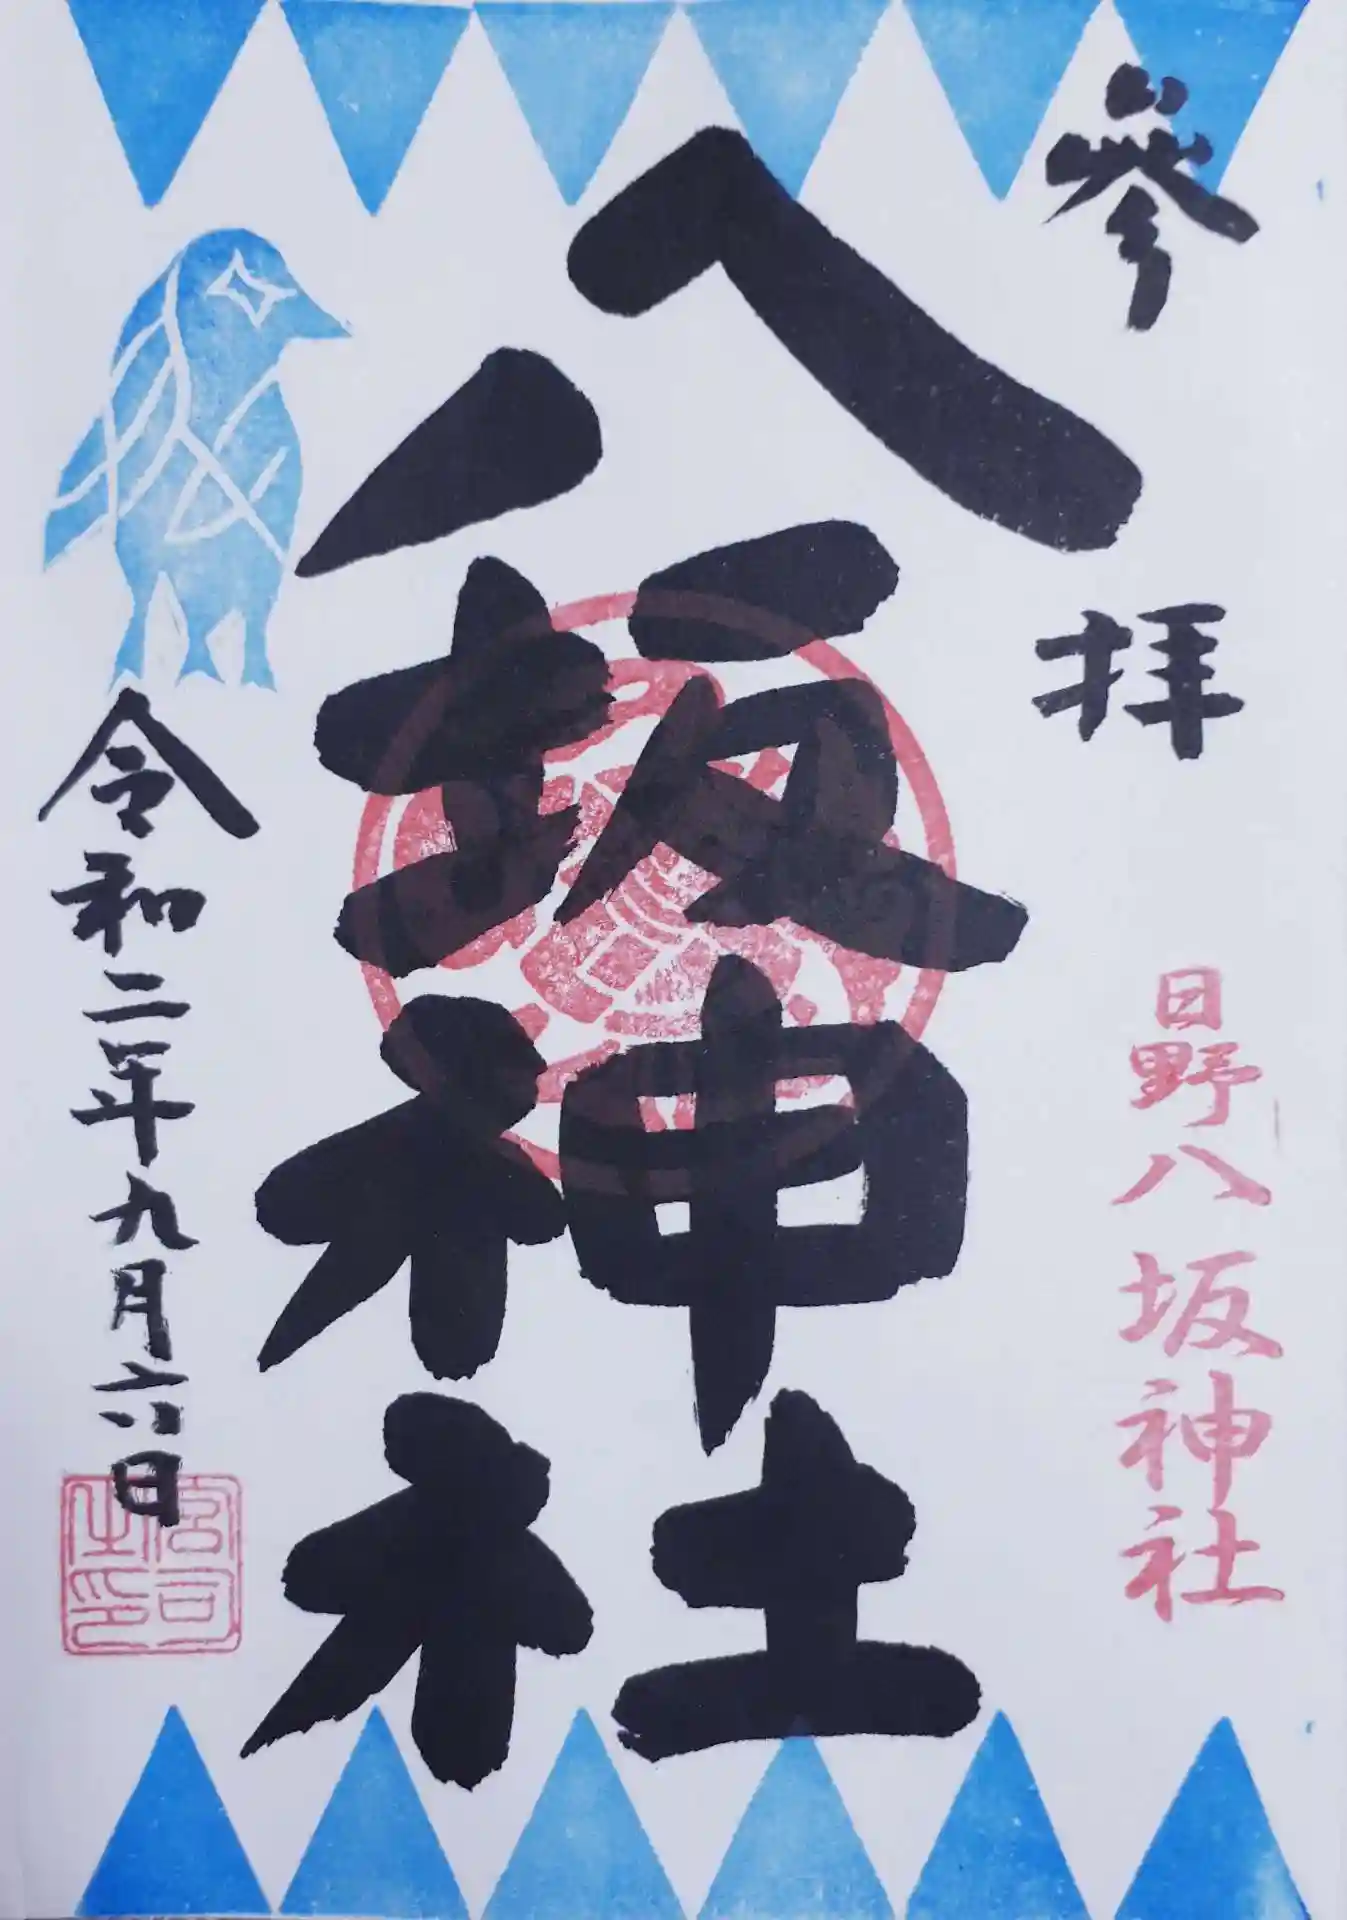 参拝
日野八坂神社
八坂神社
令和二年九月六日
宮司之印